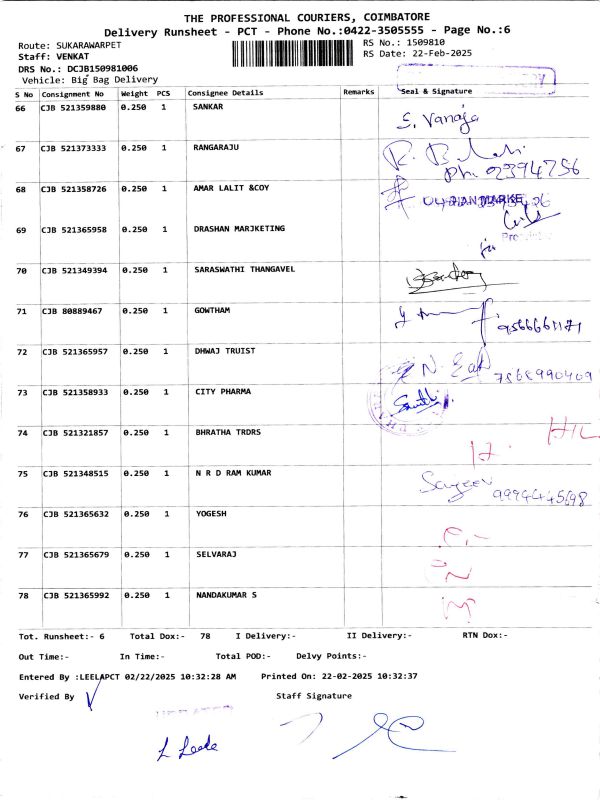 THE PROFESSIONAL COURIERS, COIMBATORE
Delivery Runsheet - PCT - Phone No.:0422-3505555 - Page No.:6
Route: SUKARAWARPET
RS No.: 1509810
Staff: VENKAT
RS Date: 22-Feb-2025
DRS No.: DCJB150981006
Vehicle: Big Bag Delivery
S No Consignment No Weight PCS Consignee Details Remarks Seal & Signature
66 CJB 521359880 0.250 1 SANKAR S. Vanaja
67 CJB 521373333 0.250 1 RANGARAJU
68 CJB 521358726 0.250 1 AMAR LALIT &COY
69 CJB 521365958 0.250 1 DRASHAN MARJKETING
70 CJB 521349394 0.250 1 SARASWATHI THANGAVEL
71 CJB 80889467 0.250 1 GOWTHAM
72 CJB 521365957 0.250 1 DHWAJ TRUIST
73 CJB 521358933 0.250 1 CITY PHARMA
74 CJB 521321857 0.250 1 BHRATHA TRDRS
75 CJB 521348515 0.250 1 N R D RAM KUMAR
76 CJB 521365632 0.250 1 YOGESH
77 CJB 521365679 0.250 1 SELVARAJ
78 CJB 521365992 0.250 1 NANDAKUMAR S
Tot. Runsheet:- 6 Total Dox:- 78 I Delivery:- II Delivery:- RTN Dox:-
Out Time:- In Time:- Total POD:- Delvy Points:-
Entered By :LEELAPCT 02/22/2025 10:32:28 AM Printed On: 22-02-2025 10:32:37
Verified By Staff Signature